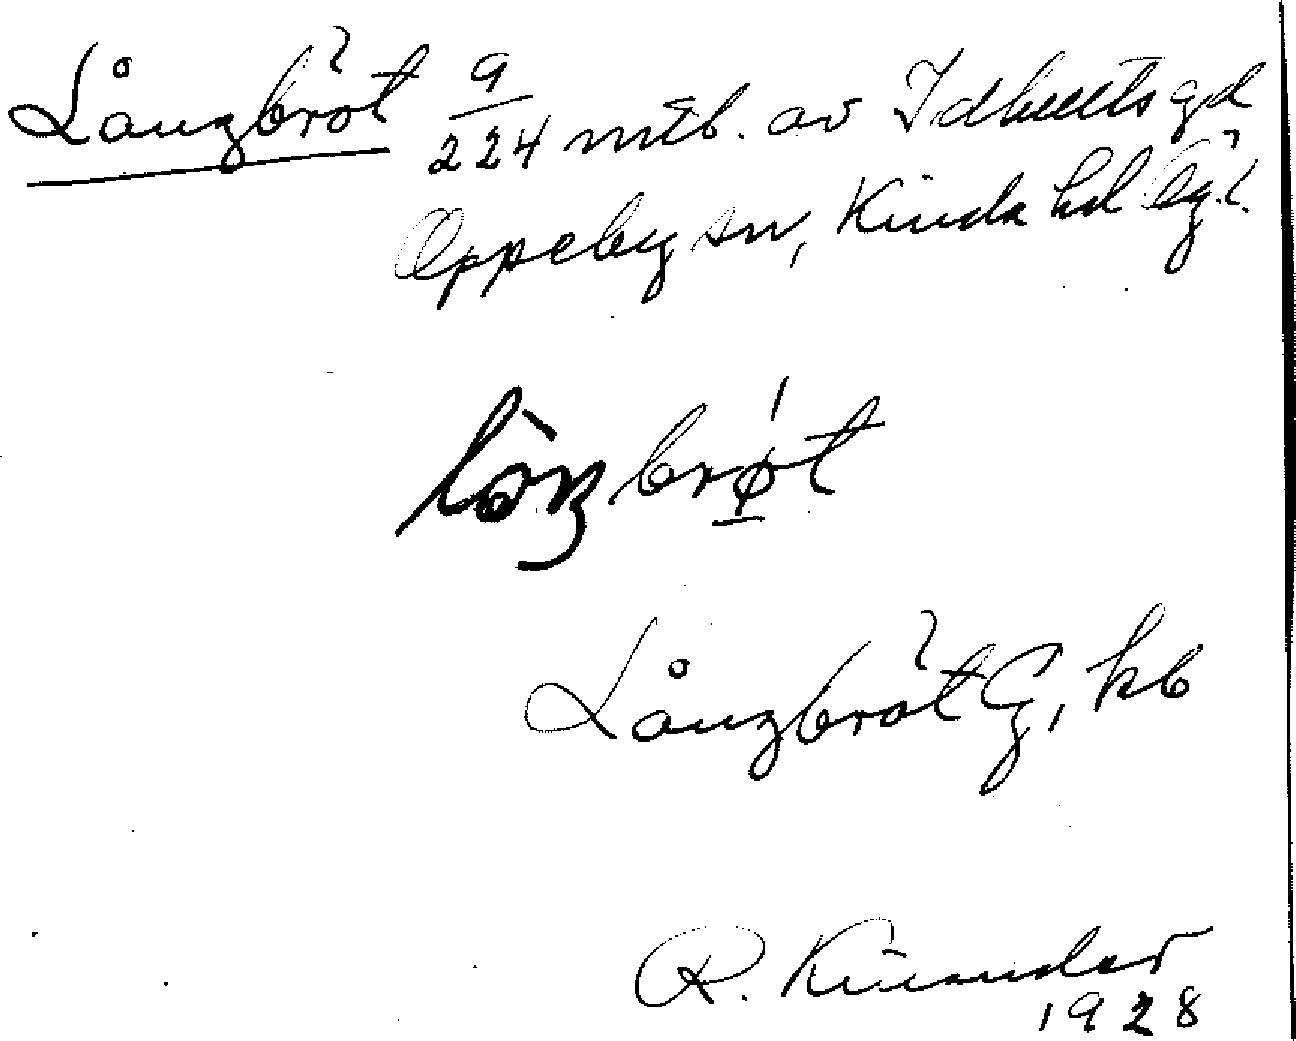 Långbröt 9/224 mtl. av Idhults gd
Oppeby sn, Kinda hd Ög.l.
lòŋbrøt
Långbröt G, kb
R. Kinander
1928